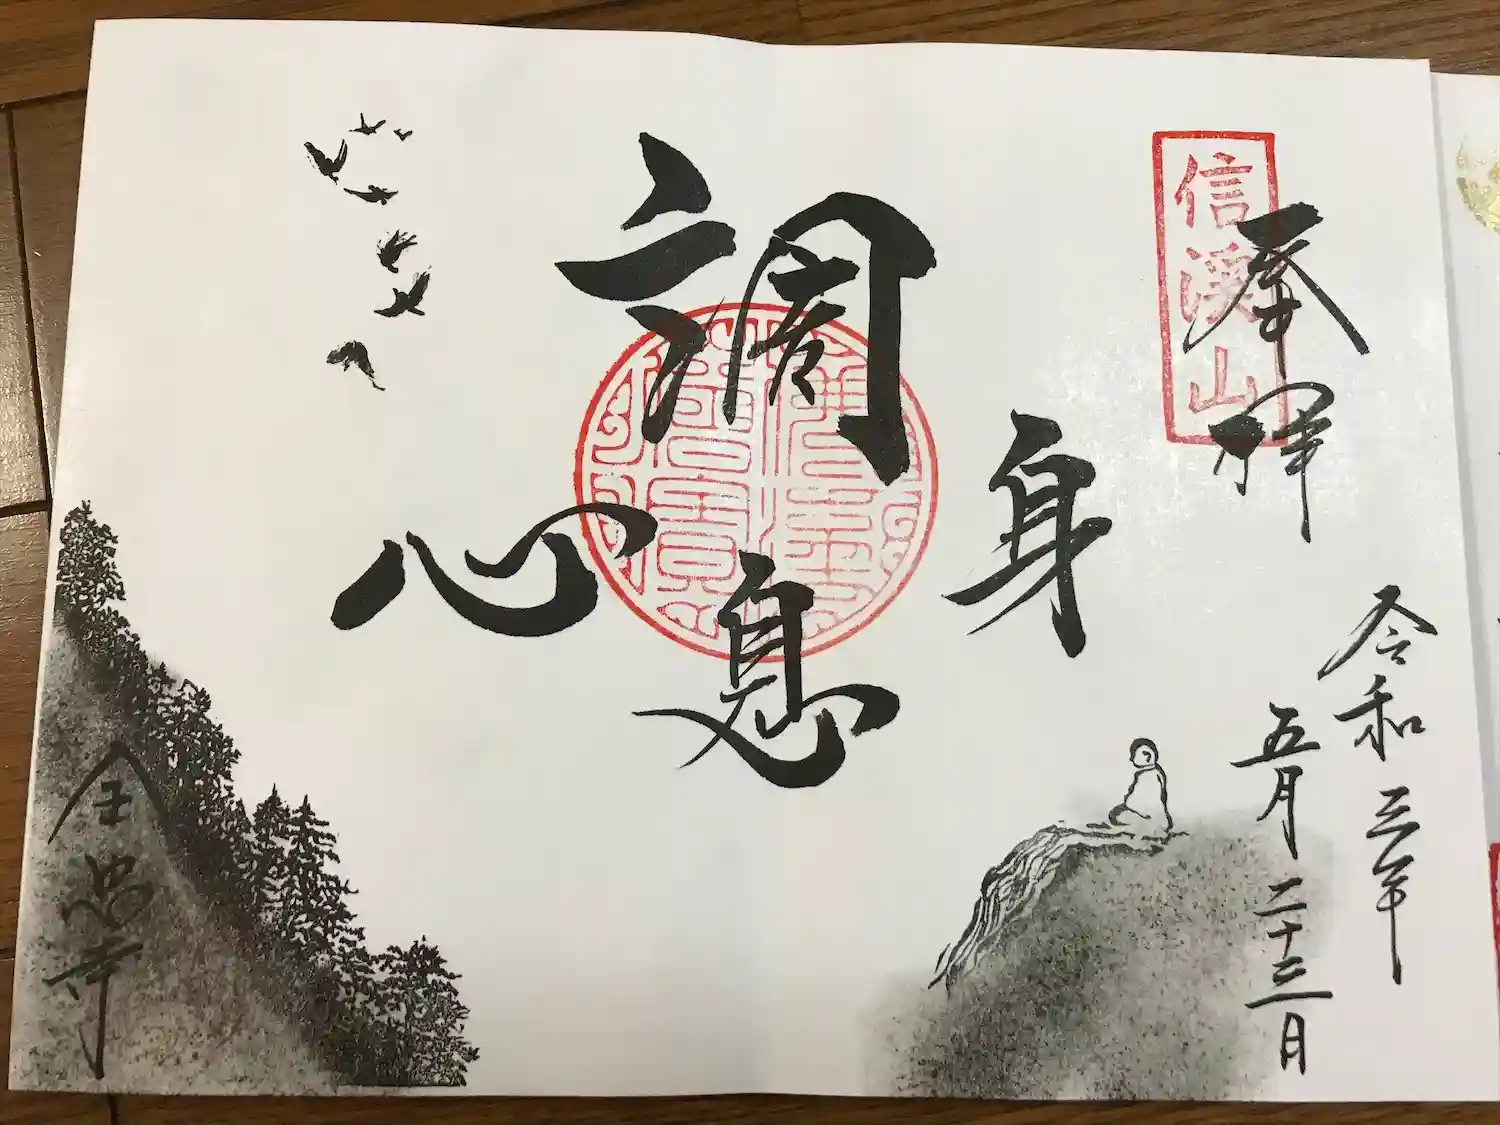 信溪山
奉拝
令和三年
五月二十三日
調
身
息
心
全忠寺